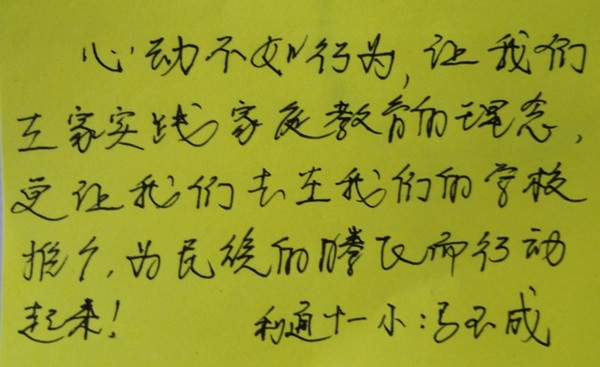 心动不如行为,让我们
在家实践家庭教育的理念,
更让我们去在我们的学校
推广,为民族的腾飞而行动
起来!  利通十一小:马玉成